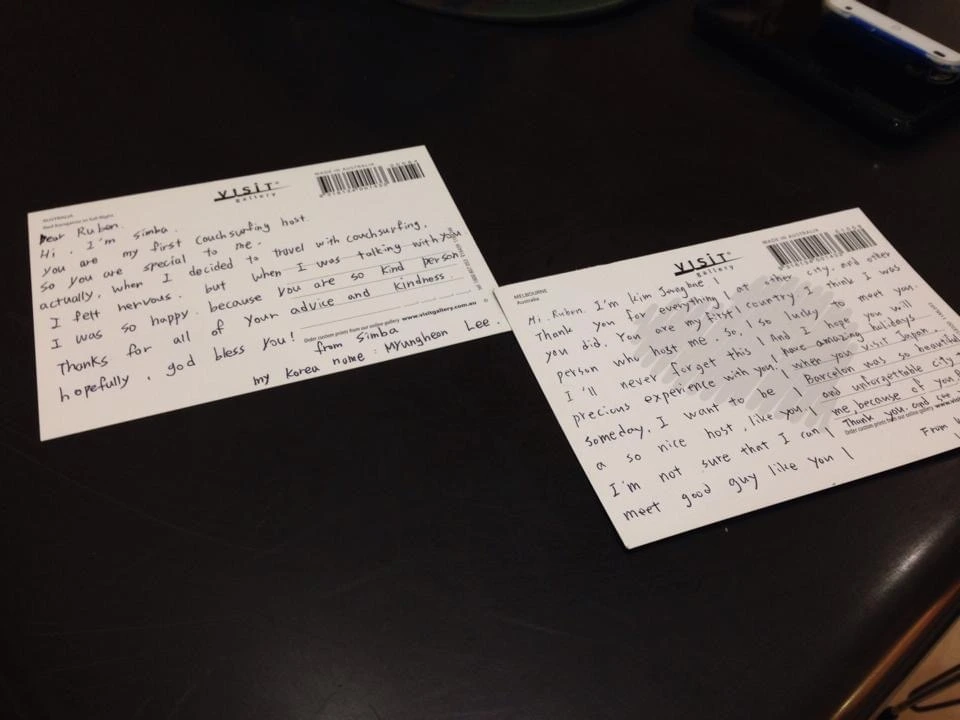 AUSTRALIA
Red Kangaroo in full flight
VISIT
gallery
MADE IN AUSTRALIA
Dear Ruben.
Hi. I'm Simba.
you are my first Couchsurfing host.
so you are special to me.
actually, when I decided to travel with couchsurfing,
I felt nervous. but when I was talking with you
I was so happy. because you are so kind person.
Thanks for all of your advice and kindness.
hopefully, god bless you!
Order custom prints from our online gallery www.visitgallery.com.au
from Simba
my Korea name : Myungheon Lee.
MELBOURNE
Australia
VISIT
gallery
MADE IN AUSTRALIA
Hi. Ruben. I'm kim
Thank you for everything!
you did. You are my first
person who host me. So, I so lucky to meet you.
I'll never forget this I and I hope you will
precious experience with you. I have amazing hilidays
someday, I want to be I when you visit Japan...
a so nice host, like you. Barcelon was so beautiful
I'm not sure that I can I and unforgettable city
meet good guy like you I me, because of you
at other city, and other
country. I think I was
Thank you. and see
Order custom prints from our online gallery www.visit
From